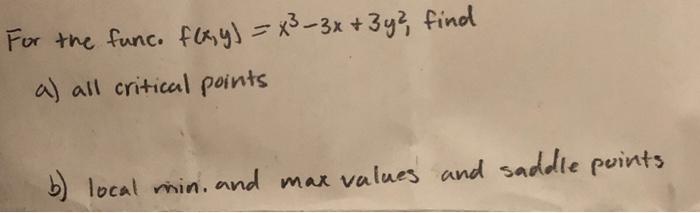 For the func. f(x,y) = x³-3x+3y², find
a) all critical points
b) local min. and max values and saddle points